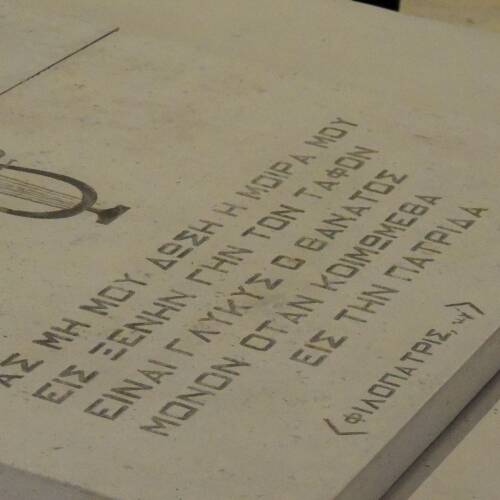 ΑΣ ΜΗ ΜΟΥ ΔΩΣΗ Η ΜΟΙΡΑ ΜΟΥ
ΕΙΣ ΞΕΝΗΝ ΓΗΝ ΤΟΝ ΤΑΦΟΝ
ΕΙΝΑΙ ΓΛΥΚΥΣ Ο ΘΑΝΑΤΟΣ
ΜΟΝΟΝ ΟΤΑΝ ΚΟΙΜΩΜΕΘΑ
ΕΙΣ ΤΗΝ ΠΑΤΡΙΔΑ
⟨ΦΙΛΟΠΑΤΡΙΣ, ιψ⟩